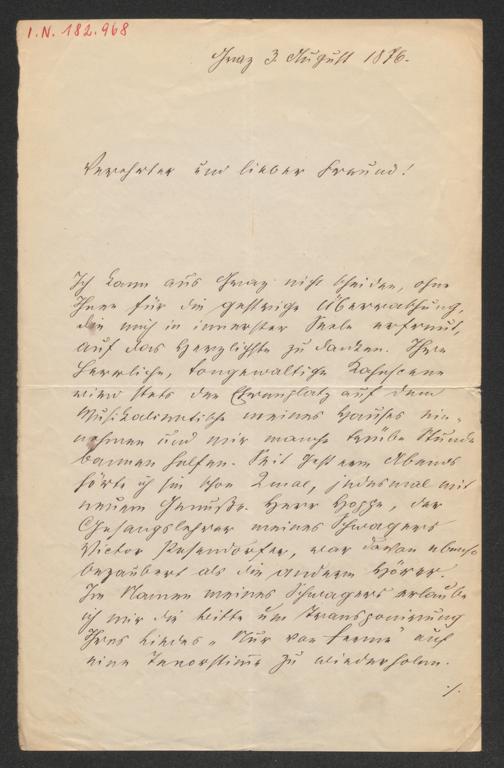 I.N. 182.968
Graz 3. August 1876.
Verehrter und lieber Freund!
Ich kann aus Graz nicht scheiden, ohne
Ihnen für die gestrige Überraschung,
die mich in innerster Seele erfreut,
auf das Herzlichste zu danken. Ihre
herrliche, tongewaltige
wird stets den Ehrenplatz auf dem
Musikalientische meines Hauses ein-
nehmen und mir manche trübe Stunde
bannen helfen. Seit gestern Abends
hörte ich sie schon 2mal, jedesmal mit
neuem Genusse. Herr Hoppe, der
Gesangslehrer meines Schwagers
Victor, war davon ebenso
bezaubert als die anderen Hörer.
Im Namen meines Schwagers erlaube
ich mir die Bitte um Transponierung
Ihres Liedes „Nur von Ferne" auf
eine Tenorstimme zu wiederholen.
./.